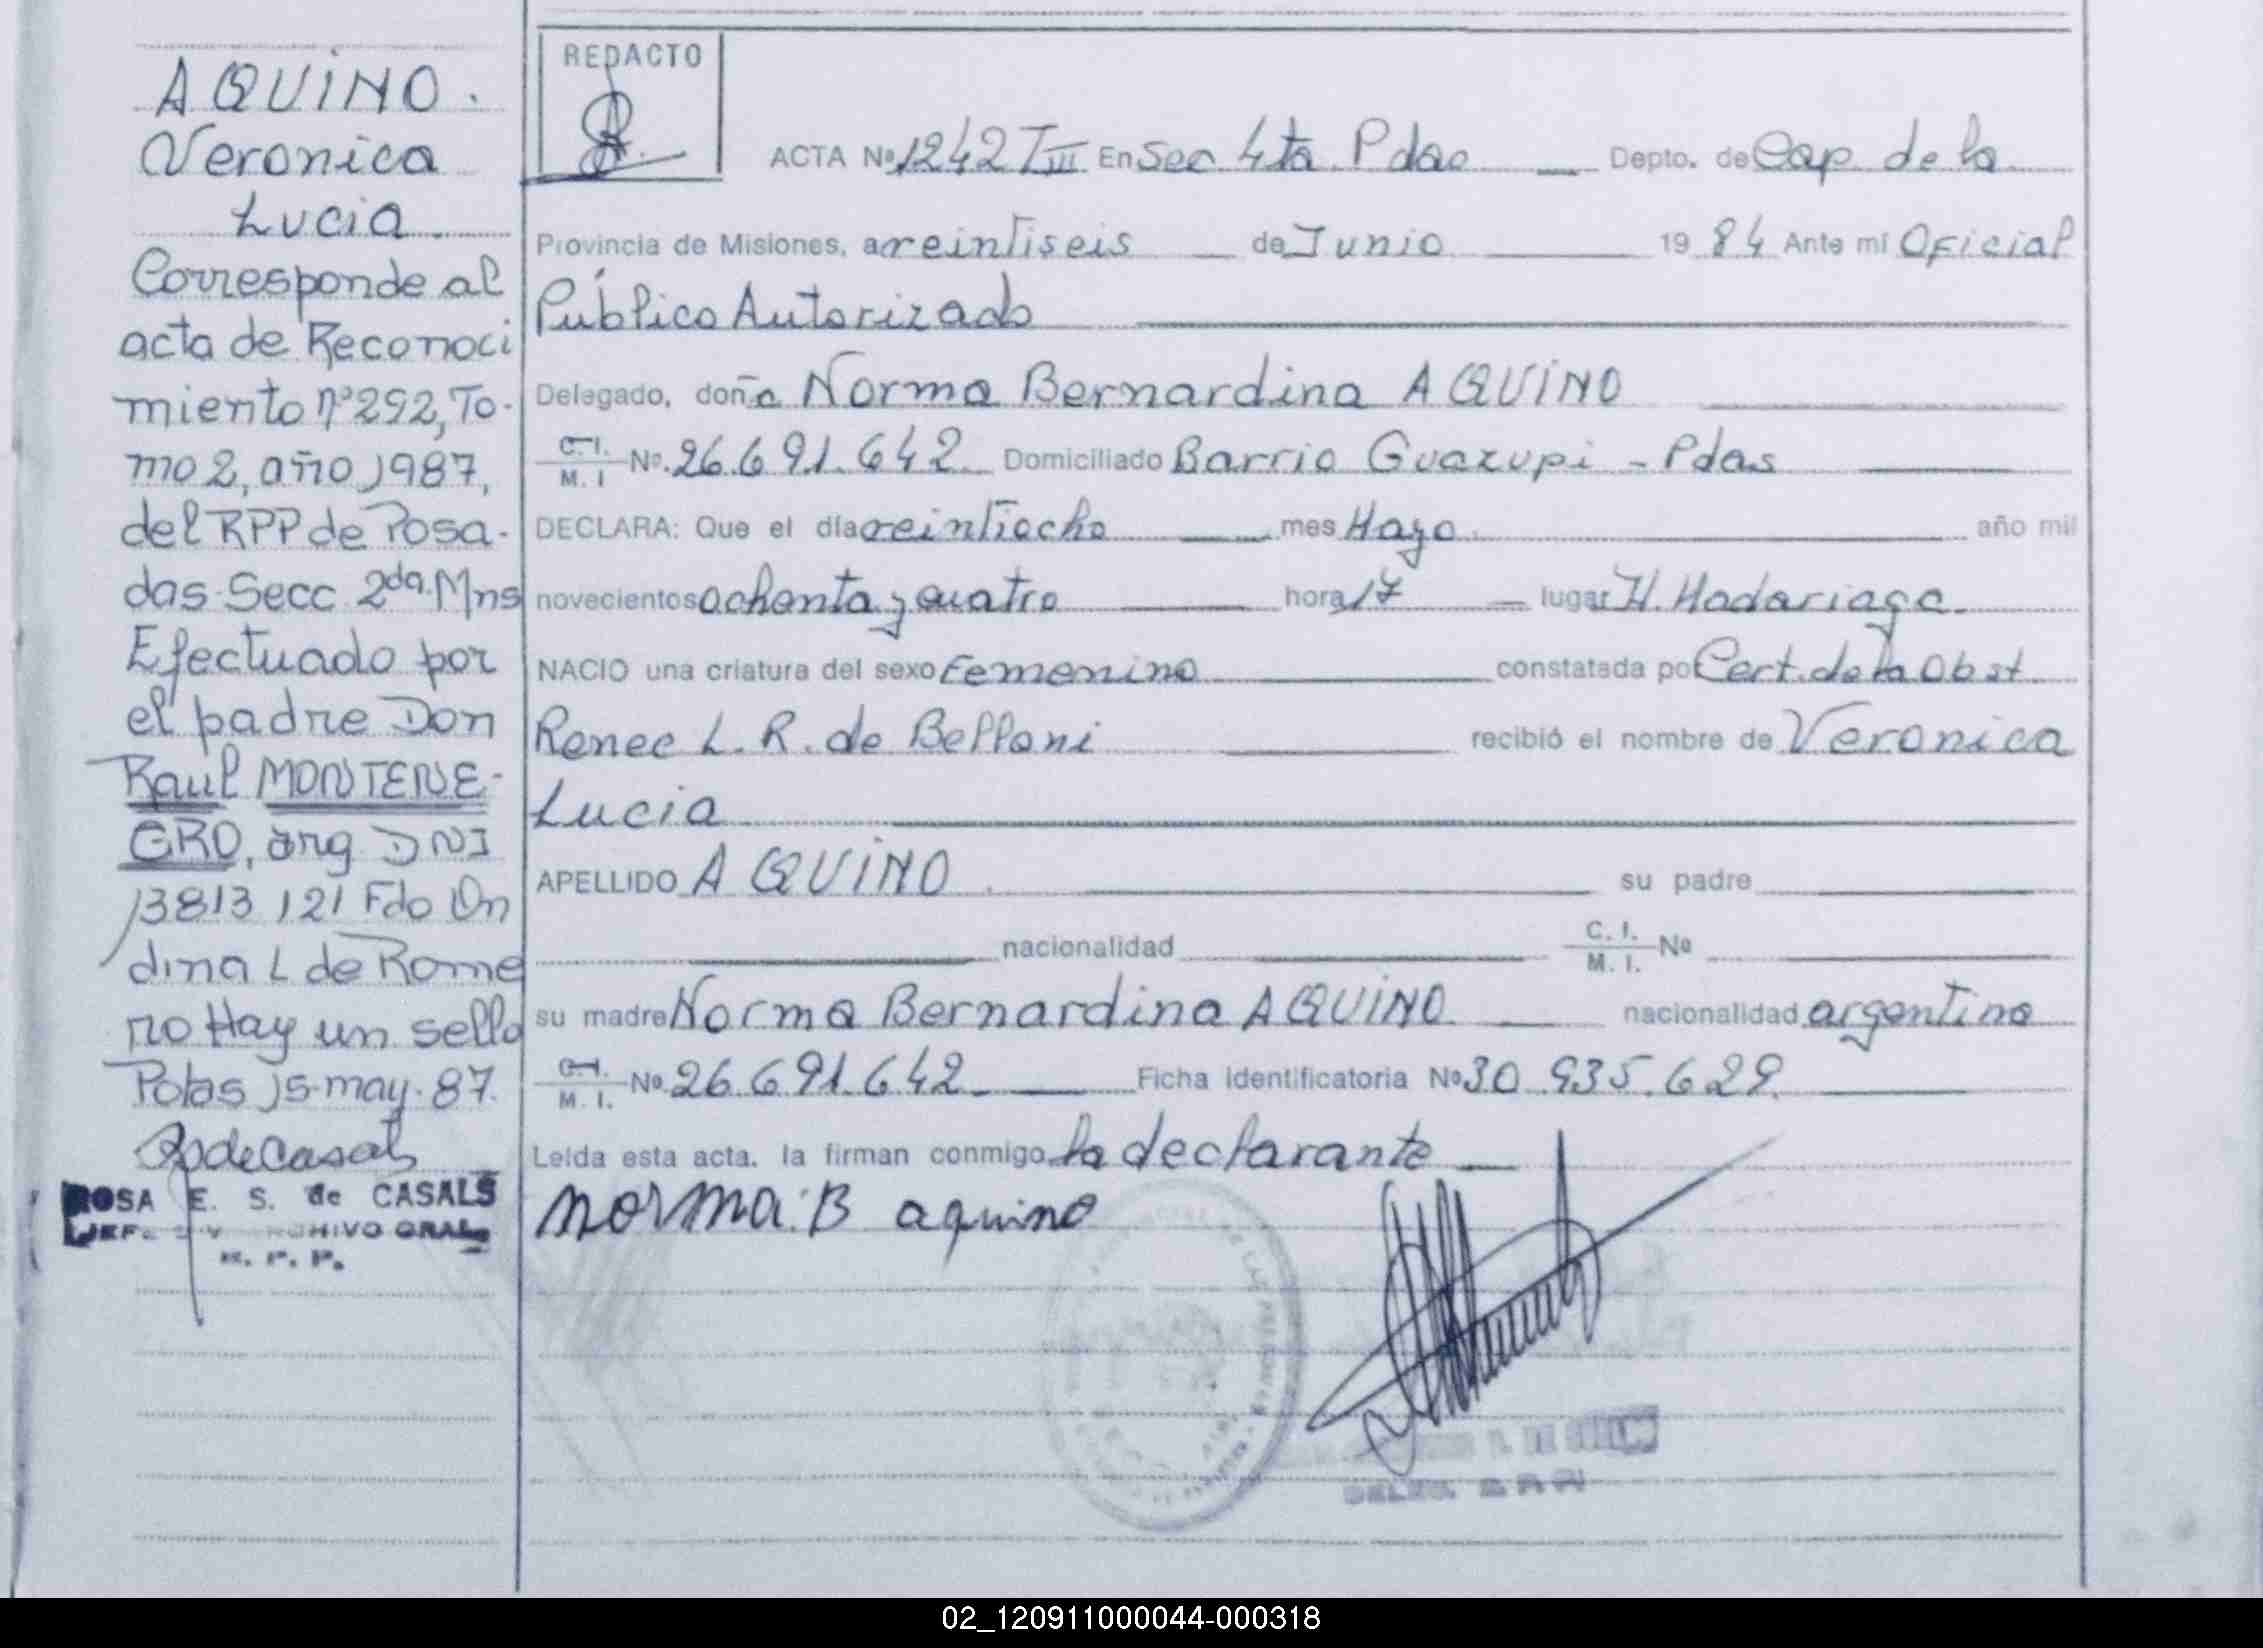 AQUINO.
Veronica
Lucia.
Corresponde al
acta de Reconoci
miento nº292, To-
mo 2, año 1987,
del RPP de Posa-
das Secc 2da. Mns
Efectuado por
el padre Don
Raul MONTENE-
GRO, arg DNI
13813121 Fdo On
dina L de Rome
ro Hay un sello
Pdas 15-may-87.
ROSA E. S. de CASALS
ARCHIVO GRAL.
R. P. P.
REDACTO
ACTA Nº 1242 TIII En Sec 4ta Pdas Depto. de Cap. de la
Provincia de Misiones, a veintiseis de Junio 19 84 Ante mí Oficial
Público Autorizado
Delegado, doña Norma Bernardina AQUINO
C.I. M.I Nº. 26.691.642 Domiciliado Barrio Guazupi - Pdas
DECLARA: Que el día veintiocho mes Mayo año mil
novecientos ochenta y cuatro hora 17 lugar H. Madariaga
NACIO una criatura del sexo Femenino constatada por Cert. de la Obst
Renee L. R. de Belloni recibió el nombre de Veronica
Lucia
APELLIDO AQUINO su padre
nacionalidad C. I. M. I. Nº
su madre Norma Bernardina AQUINO nacionalidad argentina
C.I. M. I. Nº 26.691.642 Ficha identificatoria Nº 30.935.629
Leída esta acta. la firman conmigo la declarante
Norma B aquino
02_120911000044-000318